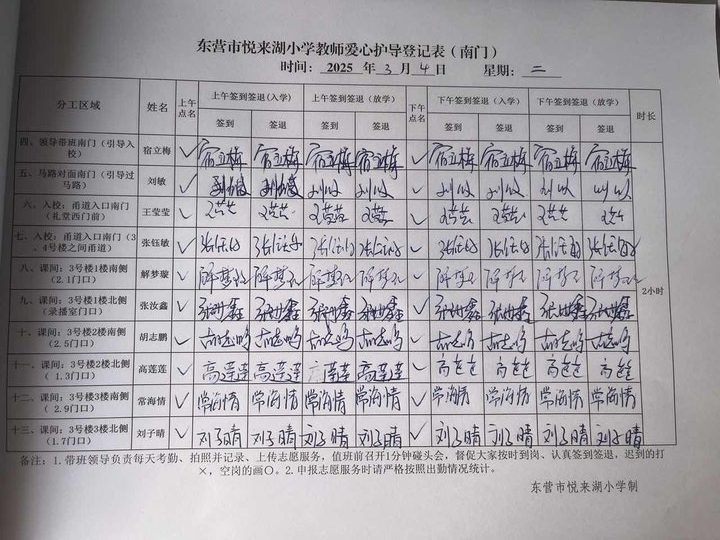 东营市悦来湖小学教师爱心护导登记表（南门）
时间： 2025 年 3 月 4 日 星期： 二
分工区域 姓名 上午点名 上午签到签退(入学) 上午签到签退（放学） 下午点名 下午签到签退（入学） 下午签到签退（放学） 时长
签到 签退 签到 签退 签到 签退 签到 签退
四、领导带班南门（引导入校） 宿立梅 ✓ 宿立梅 宿立梅 宿立梅 宿立梅 ✓ 宿立梅 宿立梅 宿立梅 宿立梅
五、马路对面南门（引导过马路） 刘敏 ✓ 刘敏 刘敏 刘敏 刘敏 ✓ 刘敏 刘敏 刘敏 刘敏
六、入校：甬道入口南门（礼堂西门前） 王莹莹 ✓
七、入校：甬道入口南门(3、4号楼之间甬道) 张钰敏 ✓
八、课间：3号楼1楼南侧（2.1门口） 解梦璇 ✓
九、课间：3号楼1楼北侧（录播室门口） 张汝鑫 ✓ 张汝鑫 张汝鑫 张汝鑫 张汝鑫 ✓ 张汝鑫 张汝鑫 张汝鑫 张汝鑫
十、课间：3号楼2楼南侧（2.5门口） 胡志鹏 ✓ 胡志鹏 胡志鹏 胡志鹏 胡志鹏 ✓ 胡志鹏 胡志鹏 胡志鹏 胡志鹏
十一、课间：3号楼2楼北侧（1.3门口） 高莲莲 ✓ 高莲莲 高莲莲 高莲莲 高莲莲 ✓ 高莲莲 高莲莲 高莲莲 高莲莲
十二、课间：3号楼3楼南侧（2.9门口） 常海情 ✓ 常海情 常海情 常海情 常海情 ✓ 常海情 常海情 常海情 常海情
十三、课间：3号楼3楼北侧（1.7门口） 刘子晴 ✓ 刘子晴 刘子晴 刘子晴 刘子晴 ✓ 刘子晴 刘子晴 刘子晴 刘子晴
2小时
备注：1.带班领导负责每天考勤、拍照并记录、上传志愿服务，值班前召开1分钟碰头会，督促大家按时到岗、认真签到签退，迟到的打
×，空岗的画〇。2.申报志愿服务时请严格按照出勤情况统计。
东营市悦来湖小学制